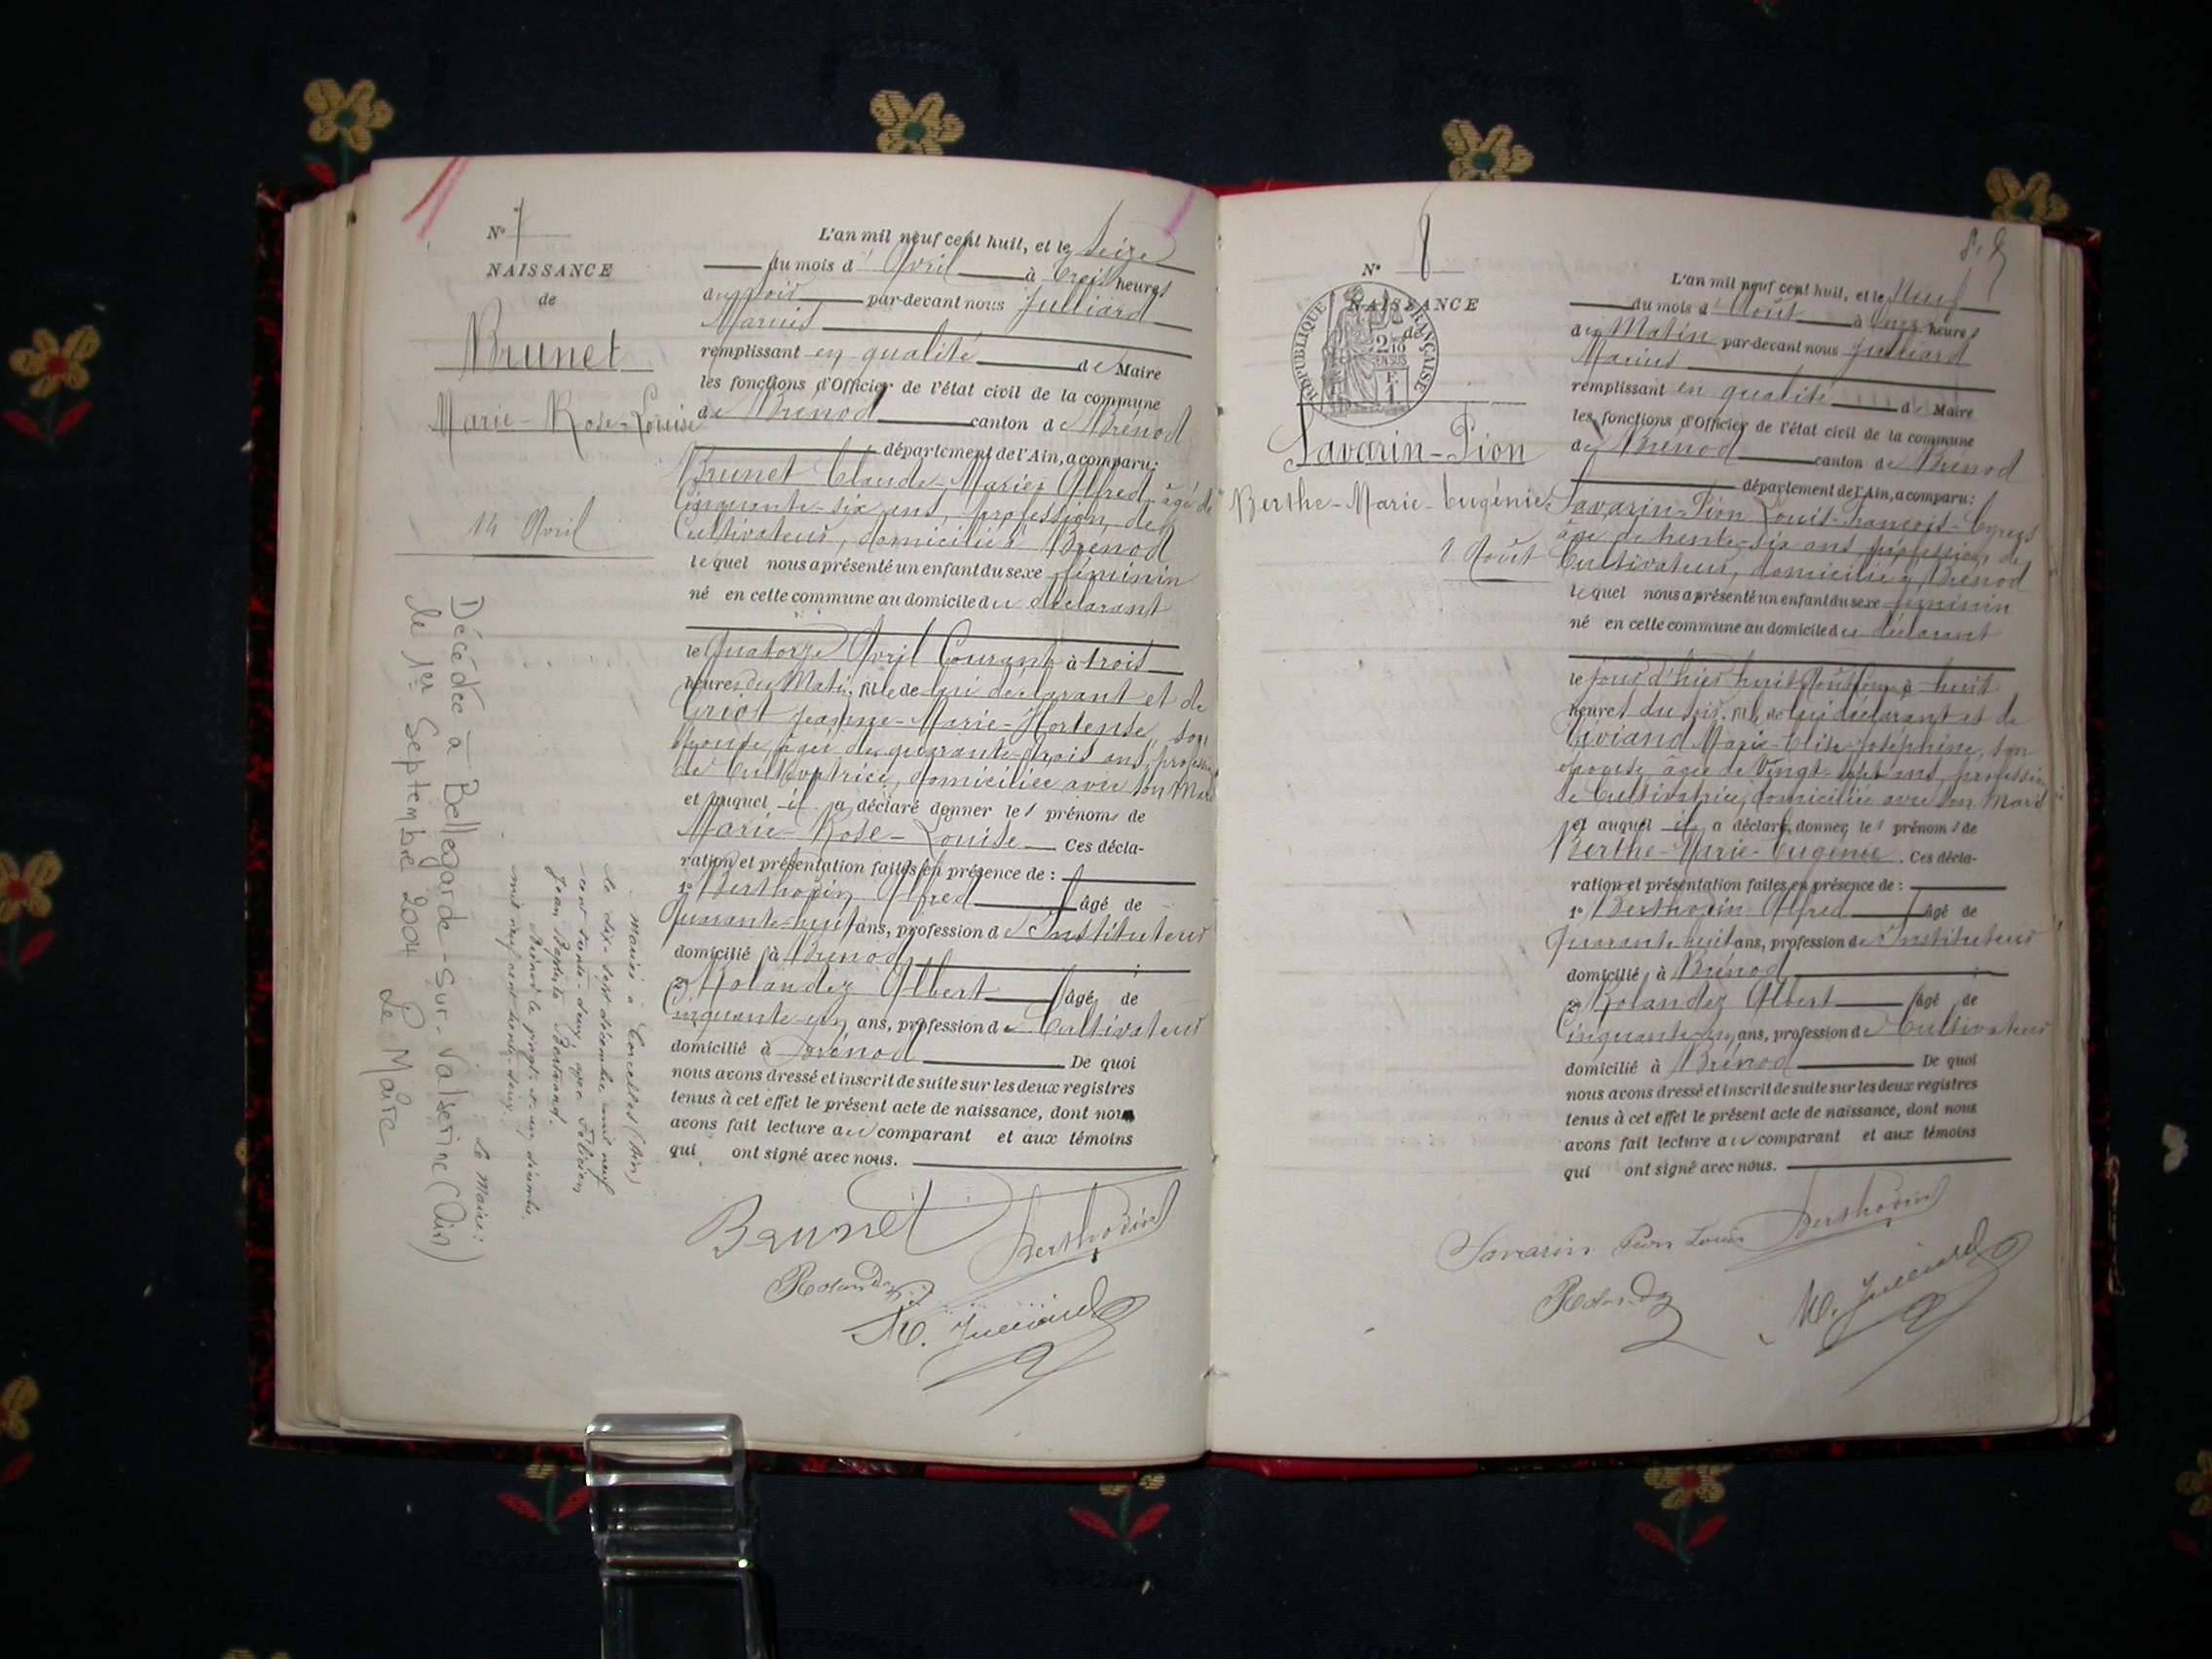 N° 7
NAISSANCE
de
Brunet
Marie-Rose-Louise
14 Avril
Mariée à Corcelles (Ain)
le dix-sept décembre mil neuf
cent trente-deux avec Félicien
Jean Baptiste Bertrand.
Brénod le vingt-et-un décembre
mil neuf cent trente-deux.
Le Maire:
Décédée à Bellegarde-sur-Valserine (Ain)
le 1er Septembre 2004
Le Maire
L'an mil neuf cent huit, et le Seize
du mois d'Avril à trois heures
du soir par-devant nous Julliard
Marius
remplissant en qualité de Maire
les fonctions d'Officier de l'état civil de la commune
de Brénod canton de Brénod
département de l'Ain, a comparu:
Brunet Claude-Marie Alfred, âgé de
Cinquante-six ans, profession de
Cultivateur, domicilié à Brénod
lequel nous a présenté un enfant du sexe féminin
né en cette commune au domicile du déclarant
le Quatorze Avril Courant à trois
heures du Matin, fille de lui déclarant et de
Griot Jeanne-Marie-Hortense, son
épouse âgée de quarante-trois ans, profession
de Cultivatrice, domiciliée avec son Mari
et auquel il a déclaré donner les prénoms de
Marie-Rose-Louise Ces décla-
ration et présentation faites en présence de:
1° Berthozin Alfred âgé de
Quarante-huit ans, profession de Instituteur
domicilié à Brénod;
2° Rolandez Albert âgé de
Cinquante-un ans, profession de Cultivateur
domicilié à Brénod De quoi
nous avons dressé et inscrit de suite sur les deux registres
tenus à cet effet le présent acte de naissance, dont nous
avons fait lecture au comparant et aux témoins
qui ont signé avec nous.
Brunet Berthozin
Rolandez
M. Julliard
N° 8
NAISSANCE
de
RÉPUBLIQUE FRANÇAISE
2/10
EN SUS
Savarin-Pion
Berthe-Marie-Eugénie
L'an mil neuf cent huit, et le Neuf
du mois d'Août à heures
du Matin par-devant nous Julliard
Marius
remplissant en qualité de Maire
les fonctions d'Officier de l'état civil de la commune
de Brénod canton de Brénod
département de l'Ain, a comparu:
Savarin-Pion Louis-François-
âgé de trente-six ans, profession de
Cultivateur, domicilié à Brénod
lequel nous a présenté un enfant du sexe féminin
né en cette commune au domicile du déclarant
le jour d'hier huit Août à huit
heures du soir, fille de lui déclarant et de
Marie-Elise-Joséphine, son
épouse, âgée de Vingt-sept ans, profession
de Cultivatrice, domiciliée avec son Mari
et auquel il a déclaré donner les prénoms de
Berthe-Marie-Eugénie. Ces décla-
ration et présentation faites en présence de:
1° Berthozin Alfred âgé de
Quarante-huit ans, profession de Instituteur
domicilié à Brénod;
2° Rolandez Albert âgé de
Cinquante-un ans, profession de Cultivateur
domicilié à Brénod De quoi
nous avons dressé et inscrit de suite sur les deux registres
tenus à cet effet le présent acte de naissance, dont nous
avons fait lecture au comparant et aux témoins
qui ont signé avec nous.
Savarin Pion Louis Berthozin
Rolandez
M. Julliard